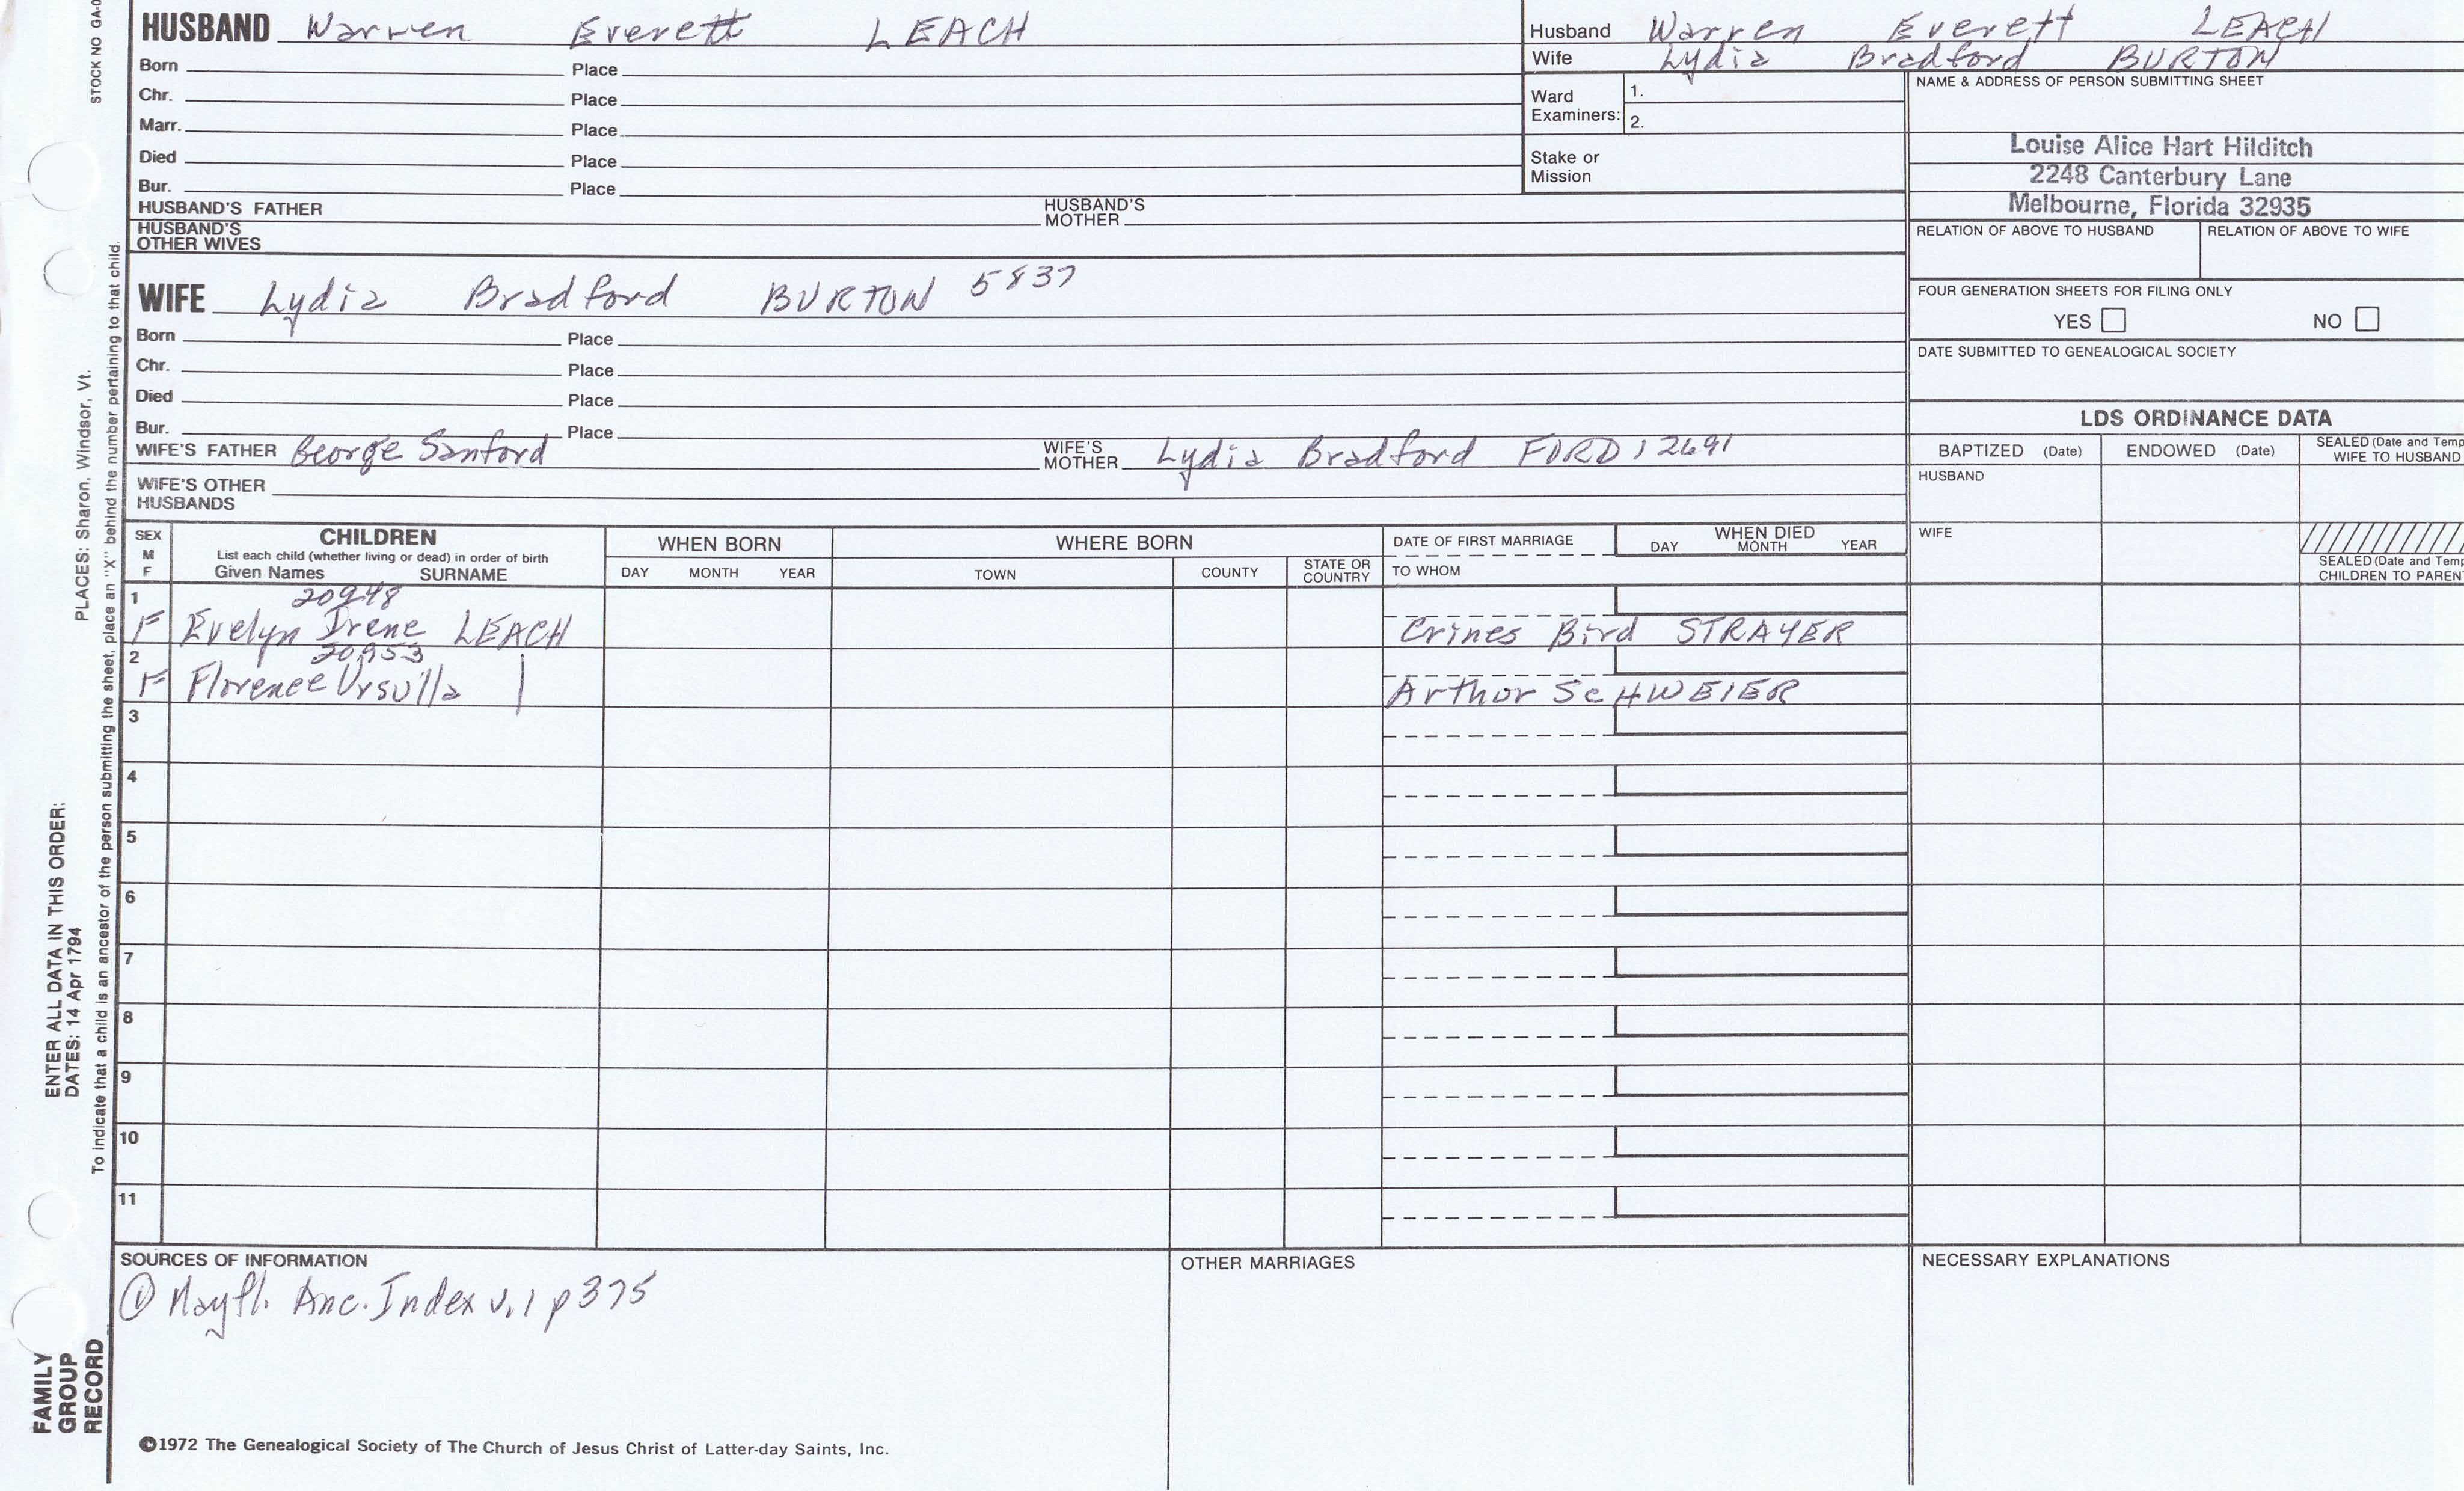 STOCK NO GA-0
HUSBAND Warren Everett LEACH
Born Place
Chr. Place
Marr. Place
Died Place
Bur. Place
HUSBAND'S FATHER HUSBAND'S MOTHER
HUSBAND'S OTHER WIVES
WIFE Lydia Bradford BURTON 5837
Born Place
Chr. Place
Died Place
Bur. Place
WIFE'S FATHER George Sanford WIFE'S MOTHER Lydia Bradford FORD 12691
WIFE'S OTHER HUSBANDS
Husband Warren Everett LEACH
Wife Lydia Bradford BURTON
Ward Examiners: 1.
2.
Stake or Mission
NAME & ADDRESS OF PERSON SUBMITTING SHEET
Louise Alice Hart Hilditch
2248 Canterbury Lane
Melbourne, Florida 32935
RELATION OF ABOVE TO HUSBAND RELATION OF ABOVE TO WIFE
FOUR GENERATION SHEETS FOR FILING ONLY
YES NO
DATE SUBMITTED TO GENEALOGICAL SOCIETY
LDS ORDINANCE DATA
BAPTIZED (Date) ENDOWED (Date) SEALED (Date and Temp
WIFE TO HUSBAND
HUSBAND
WIFE
SEALED (Date and Temp
CHILDREN TO PAREN
SEX M F
CHILDREN
List each child (whether living or dead) in order of birth
Given Names SURNAME
WHEN BORN
DAY MONTH YEAR
WHERE BORN
TOWN COUNTY STATE OR COUNTRY
DATE OF FIRST MARRIAGE
TO WHOM
WHEN DIED
DAY MONTH YEAR
1 20948
F Evelyn Irene LEACH Crines Bird STRAYER
2 20953
F Florence Ursulla Arthur SCHWEIER
3
4
5
6
7
8
9
10
11
SOURCES OF INFORMATION
① Mayfl. Anc. Index v.1 p 375
OTHER MARRIAGES
NECESSARY EXPLANATIONS
©1972 The Genealogical Society of The Church of Jesus Christ of Latter-day Saints, Inc.
FAMILY
GROUP
RECORD
ENTER ALL DATA IN THIS ORDER:
DATES: 14 Apr 1794
PLACES: Sharon, Windsor, Vt.
To indicate that a child is an ancestor of the person submitting the sheet, place an "X" behind the number pertaining to that child.